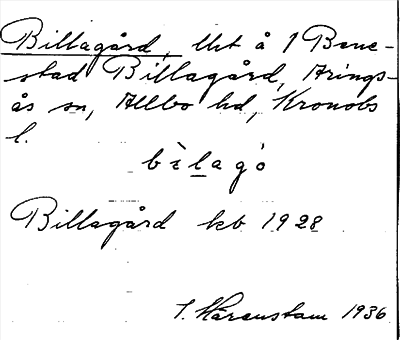 Billagård, lht å 1 Bene-
stad Billagård, Arings-
ås sn, Allbo hd, Kronobs
l.
bìlagó
Billagård kb 1928
I. Härenstam 1936